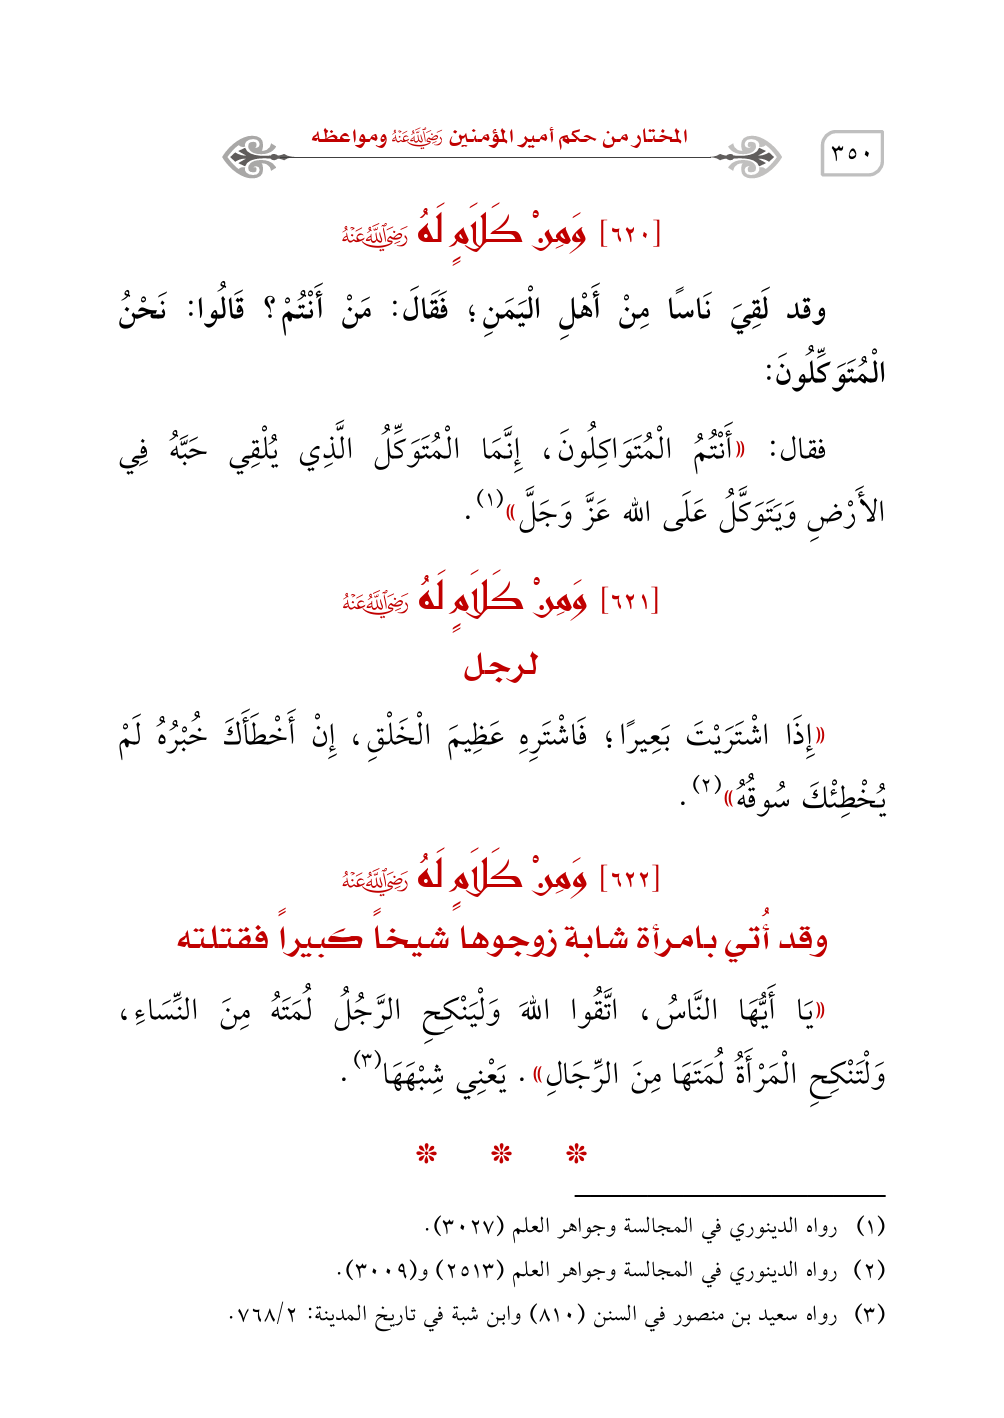 ٣٥٠
المختار من حكم أمير المؤمنين رَضِيَ اللَّهُ عَنْهُ ومواعظه
[٦٢٠] وَمِنْ كَلَامٍ لَهُ رَضِيَ اللَّهُ عَنْهُ
وقد لَقِيَ نَاسًا مِنْ أَهْلِ الْيَمَنِ؛ فَقَالَ: مَنْ أَنْتُمْ؟ قَالُوا: نَحْنُ
الْمُتَوَكِّلُونَ:
فقال: «أَنْتُمُ الْمُتَوَاكِلُونَ، إِنَّمَا الْمُتَوَكِّلُ الَّذِي يُلْقِي حَبَّهُ فِي
الأَرْضِ وَيَتَوَكَّلُ عَلَى الله عَزَّ وَجَلَّ»(١).
[٦٢١] وَمِنْ كَلَامٍ لَهُ رَضِيَ اللَّهُ عَنْهُ
لرجل
«إِذَا اشْتَرَيْتَ بَعِيرًا؛ فَاشْتَرِهِ عَظِيمَ الْخَلْقِ، إِنْ أَخْطَأَكَ خُبْرُهُ لَمْ
يُخْطِئْكَ سُوقُهُ»(٢).
[٦٢٢] وَمِنْ كَلَامٍ لَهُ رَضِيَ اللَّهُ عَنْهُ
وقد أُتي بامرأة شابة زوجوها شيخاً كبيراً فقتلته
«يَا أَيُّهَا النَّاسُ، اتَّقُوا اللهَ وَلْيَنْكِحِ الرَّجُلُ لُمَتَهُ مِنَ النِّسَاءِ،
وَلْتَنْكِحِ الْمَرْأَةُ لُمَتَهَا مِنَ الرِّجَالِ». يَعْنِي شِبْهَهَا(٣).
(١) رواه الدينوري في المجالسة وجواهر العلم (٣٠٢٧).
(٢) رواه الدينوري في المجالسة وجواهر العلم (٢٥١٣) و(٣٠٠٩).
(٣) رواه سعيد بن منصور في السنن (٨١٠) وابن شبة في تاريخ المدينة: ٧٦٨/٢.